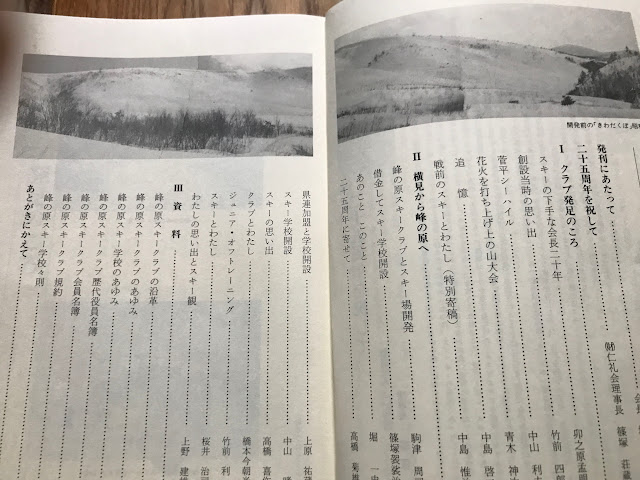 開発前の「きわだくぼ」
発刊にあたって
二十五周年を祝して ㈶仁礼会理事長 篠塚 荘蔵
Ⅰ クラブ発足のころ
スキーの下手な会長二十年 卯之原孟
創設当時の思い出 竹前 四郎
菅平シーハイル 中山 利
花火を打ち上げ上の山大会 青木 神
追憶 中島 啓
戦前のスキーとわたし（特別寄稿） 中島 惟
Ⅱ 横見から峰の原へ
峰の原スキークラブとスキー場開発 駒津 周
借金してスキー学校開設 篠塚袈裟
あのこと このこと 堀 一
二十五周年に寄せて 高橋 菊
県連加盟と学校開設 上原 祐
スキー学校開設 中山
スキーの思い出 高橋 喜
クラブとわたし 橋本今朝
ジュニア・オフトレーニング 竹前 利
スキーとわたし 桜井 治
わたしの思い出とスキー観 上野 建
Ⅲ 資料
峰の原スキークラブの沿革
峰の原スキークラブのあゆみ
峰の原スキー学校のあゆみ
峰の原スキークラブ歴代役員名簿
峰の原スキークラブ会員名簿
峰の原スキークラブ規約
峰の原スキー学校々則
あとがきにかえて